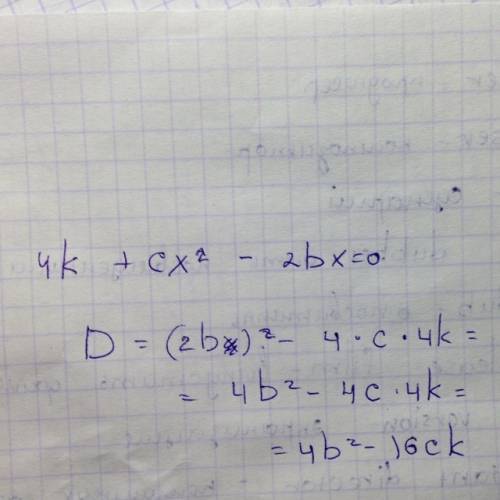 4k + cx² - 2bx=0
D = (2b)² - 4 · c · 4k =
= 4b² - 4c · 4k =
= 4b² - 16ck